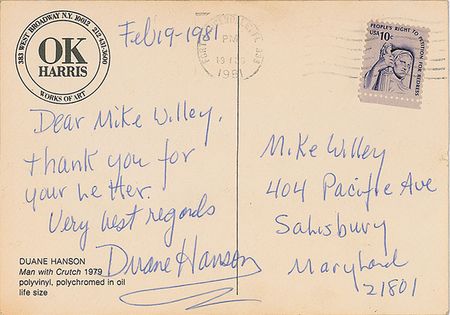 383 WEST BROADWAY N.Y. 10012 212 431-3600
OK
HARRIS
WORKS OF ART
Feb 19-1981
PM
1981
PEOPLE'S RIGHT TO PETITION FOR REDRESS
USA 10c
Dear Mike Willey,
thank you for
your letter.
Very best regards
Duane Hanson
Mike Willey
404 Pacific Ave
Salisbury
Maryland
21801
DUANE HANSON
Man with Crutch 1979
polyvinyl, polychromed in oil
life size